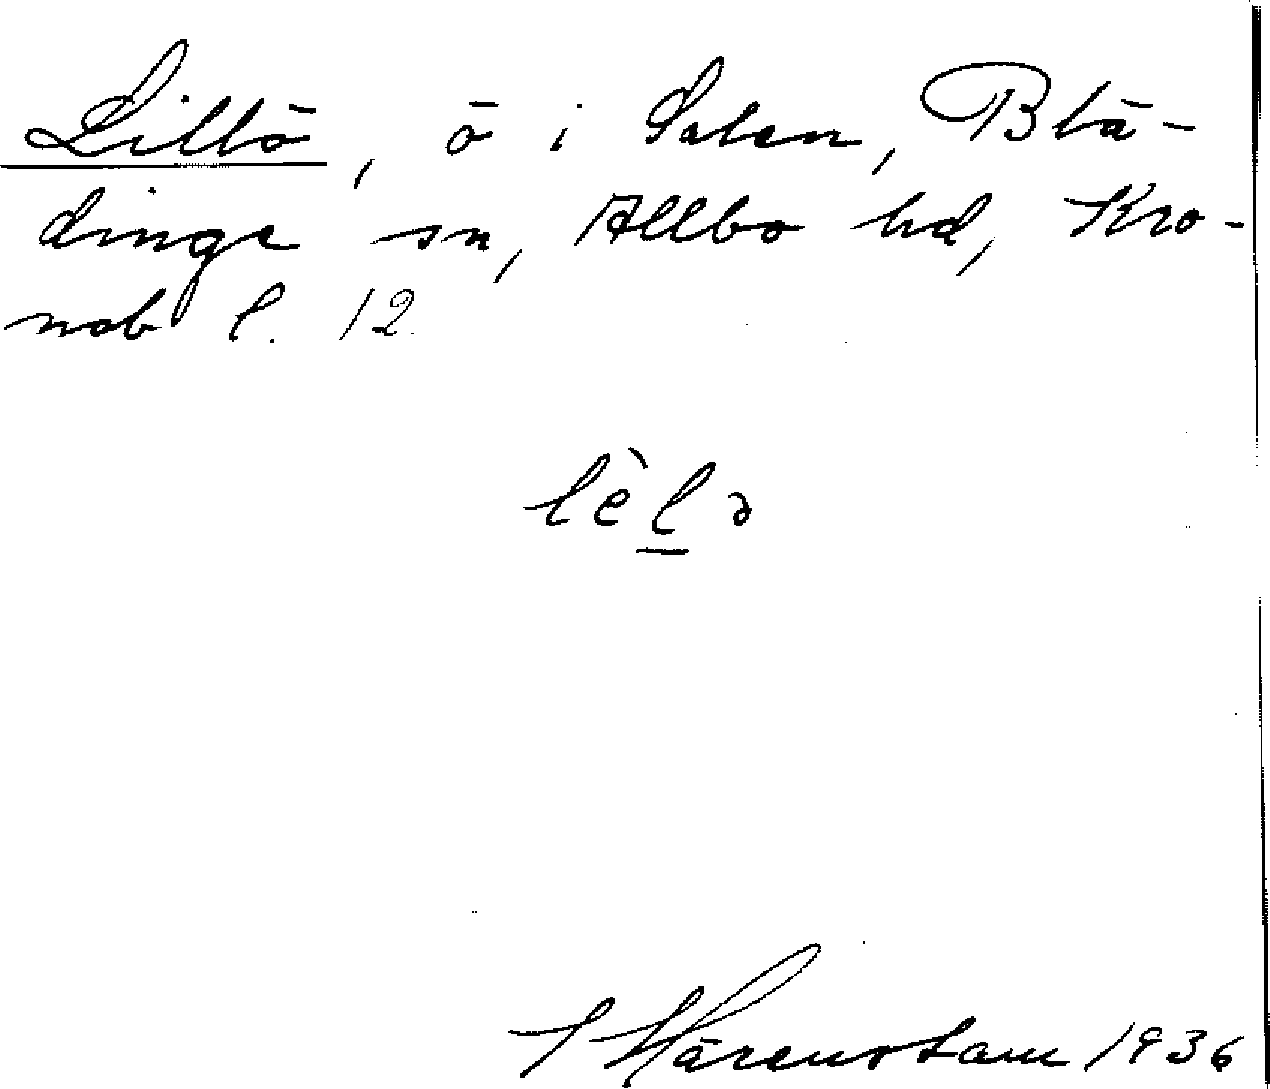 Lillö, ö i Salen, Blä-
dinge sn, Allbo hd, Kro-
nob l. 12.
lèlə
Härenstam 1936